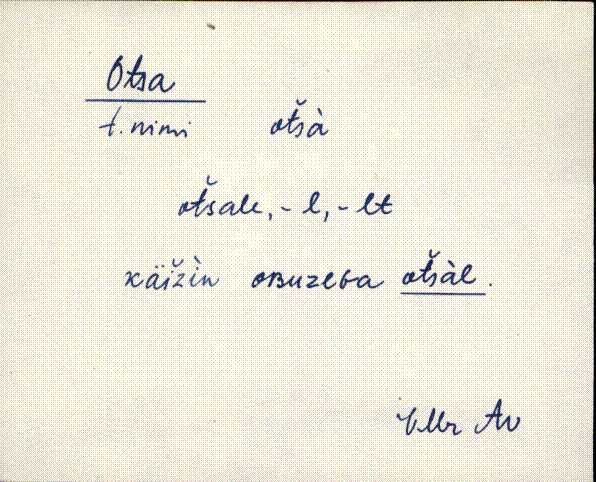 Otsa
t. nimi otšà
otšale, -l, -lt
käižìn oʙuzeɢa otšàl.
VMr Av